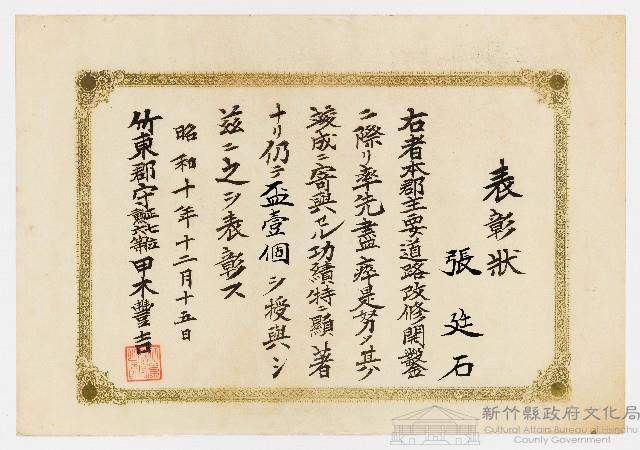 表彰狀
張廷石
右者本郡主要道路改修開鑿
ニ際リ率先盡瘁是努メ其ノ
竣成ニ寄與セル功績特ニ顯著
ナリ仍テ盃壹個ヲ授與シ
茲ニ之ヲ表彰ス
昭和十年十二月十五日
竹東郡守正七位勳六等甲木豐吉
新竹縣政府文化局
Cultural Affairs Bureau of Hsinchu
County Government